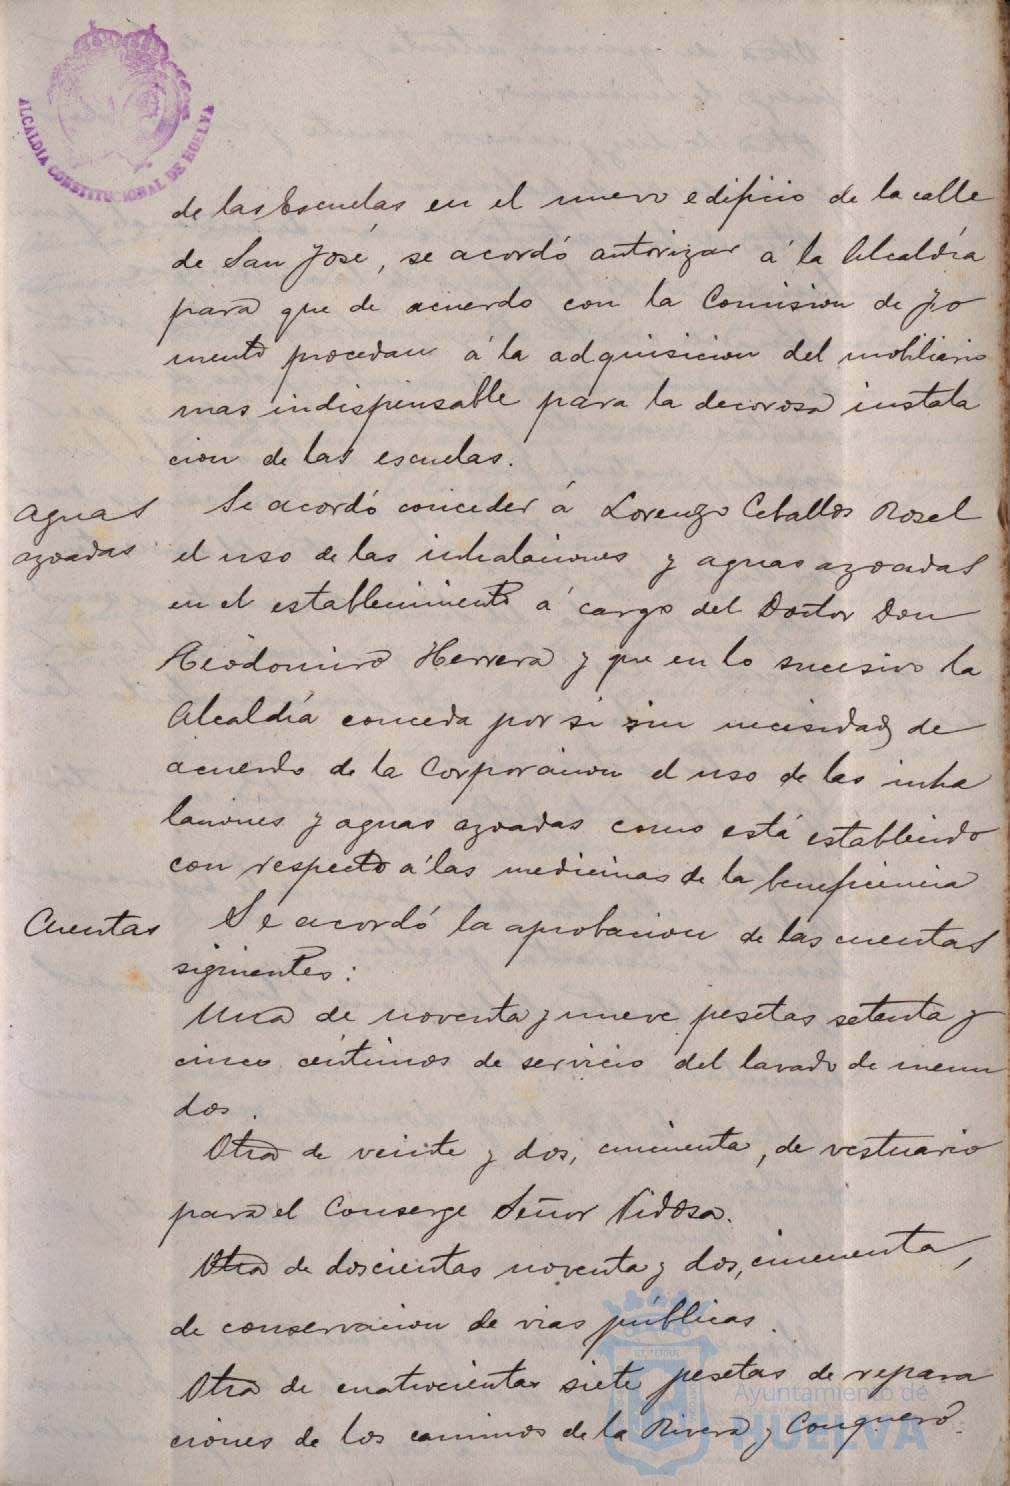 ALCALDIA CONSTITUCIONAL DE HUELVA
de las Escuelas en el nuevo edificio de la calle
de San José, se acordó autorizar á la Alcaldía
para que de acuerdo con la Comision de Fo
mento procedan á la adquisicion del mobiliario
mas indispensable para la decorosa instala
cion de las escuelas.
aguas
azoadas
Se acordó conceder á Lorenzo Ceballos Rosel
el uso de las inhalaciones y aguas azoadas
en el establecimiento á cargo del Doctor Don
Teodomiro Herrera y que en lo sucesivo la
Alcaldía conceda por si sin necesidad de
acuerdo de la Corporacion el uso de las inha
laciones y aguas azoadas como está establecido
con respecto á las medicinas de la beneficencia
Cuentas
Se acordó la aprobacion de las cuentas
siguientes:
Una de noventa y nueve pesetas setenta y
cinco céntimos de servicio del lavado de menu
dos.
Otra de veinte y dos, cincuenta, de vestuario
para el Conserge Señor Vidosa.
Otra de doscientas noventa y dos, cincuenta,
de conservacion de vias públicas.
Otra de cuatrocientas siete pesetas de repara
ciones de los caminos de la Rivera y Conquero.
Ayuntamiento de
HUELVA